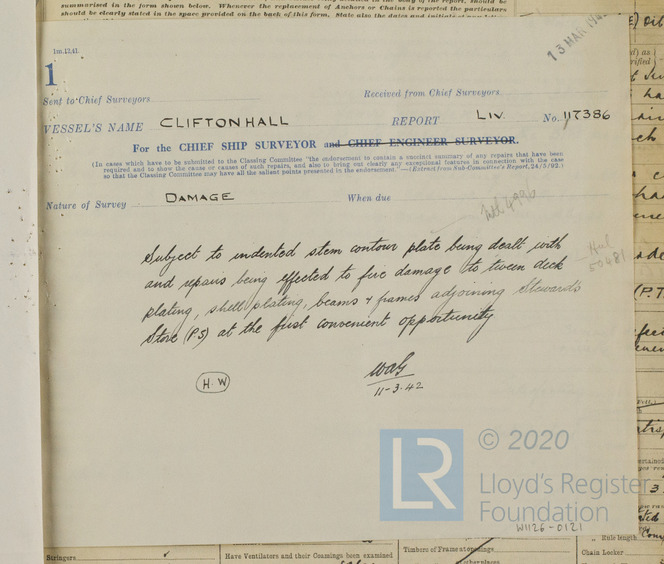 summarised in the form shown below. Whenever the replacement of Anchors or Chains is reported the particulars
should be clearly stated in the space provided on the back of this form. State also the dates and initials
1m.12.41.
13 MAR 194
1
Sent to Chief Surveyors
Received from Chief Surveyors
VESSEL'S NAME CLIFTONHALL REPORT LIV. No. 117386
For the CHIEF SHIP SURVEYOR and CHIEF ENGINEER SURVEYOR.
(In cases which have to be submitted to the Classing Committee "the endorsement to contain a succinct summary of any repairs that have been
required and to show the cause or causes of such repairs, and also to bring out clearly any exceptional features in connection with the case
so that the Classing Committee may have all the salient points presented in the endorsement."—(Extract from Sub-Committee's Report, 24/5/92.)
Nature of Survey DAMAGE When due
Subject to indented stem contour plate being dealt with
and repairs being effected to fire damage to tween deck
plating, shell plating, beams & frames adjoining Stewards
Store (PS) at the first convenient opportunity
Hul
50481
H.W
11-3-42
LR
© 2020
Lloyd's Register
Foundation
W1126-0121
Stringers
Have Ventilators and their Coamings been examined
Timbers of Frame at openings
Rule length
Chain Locker